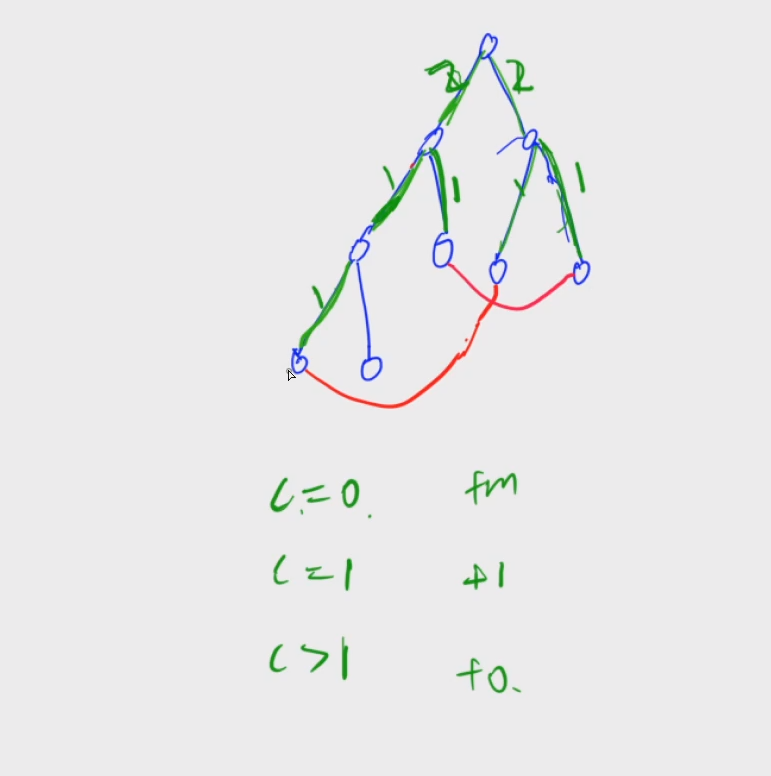 2 2
1 1 1 1
1
C=0. +m
C=1 +1
C>1 +0.